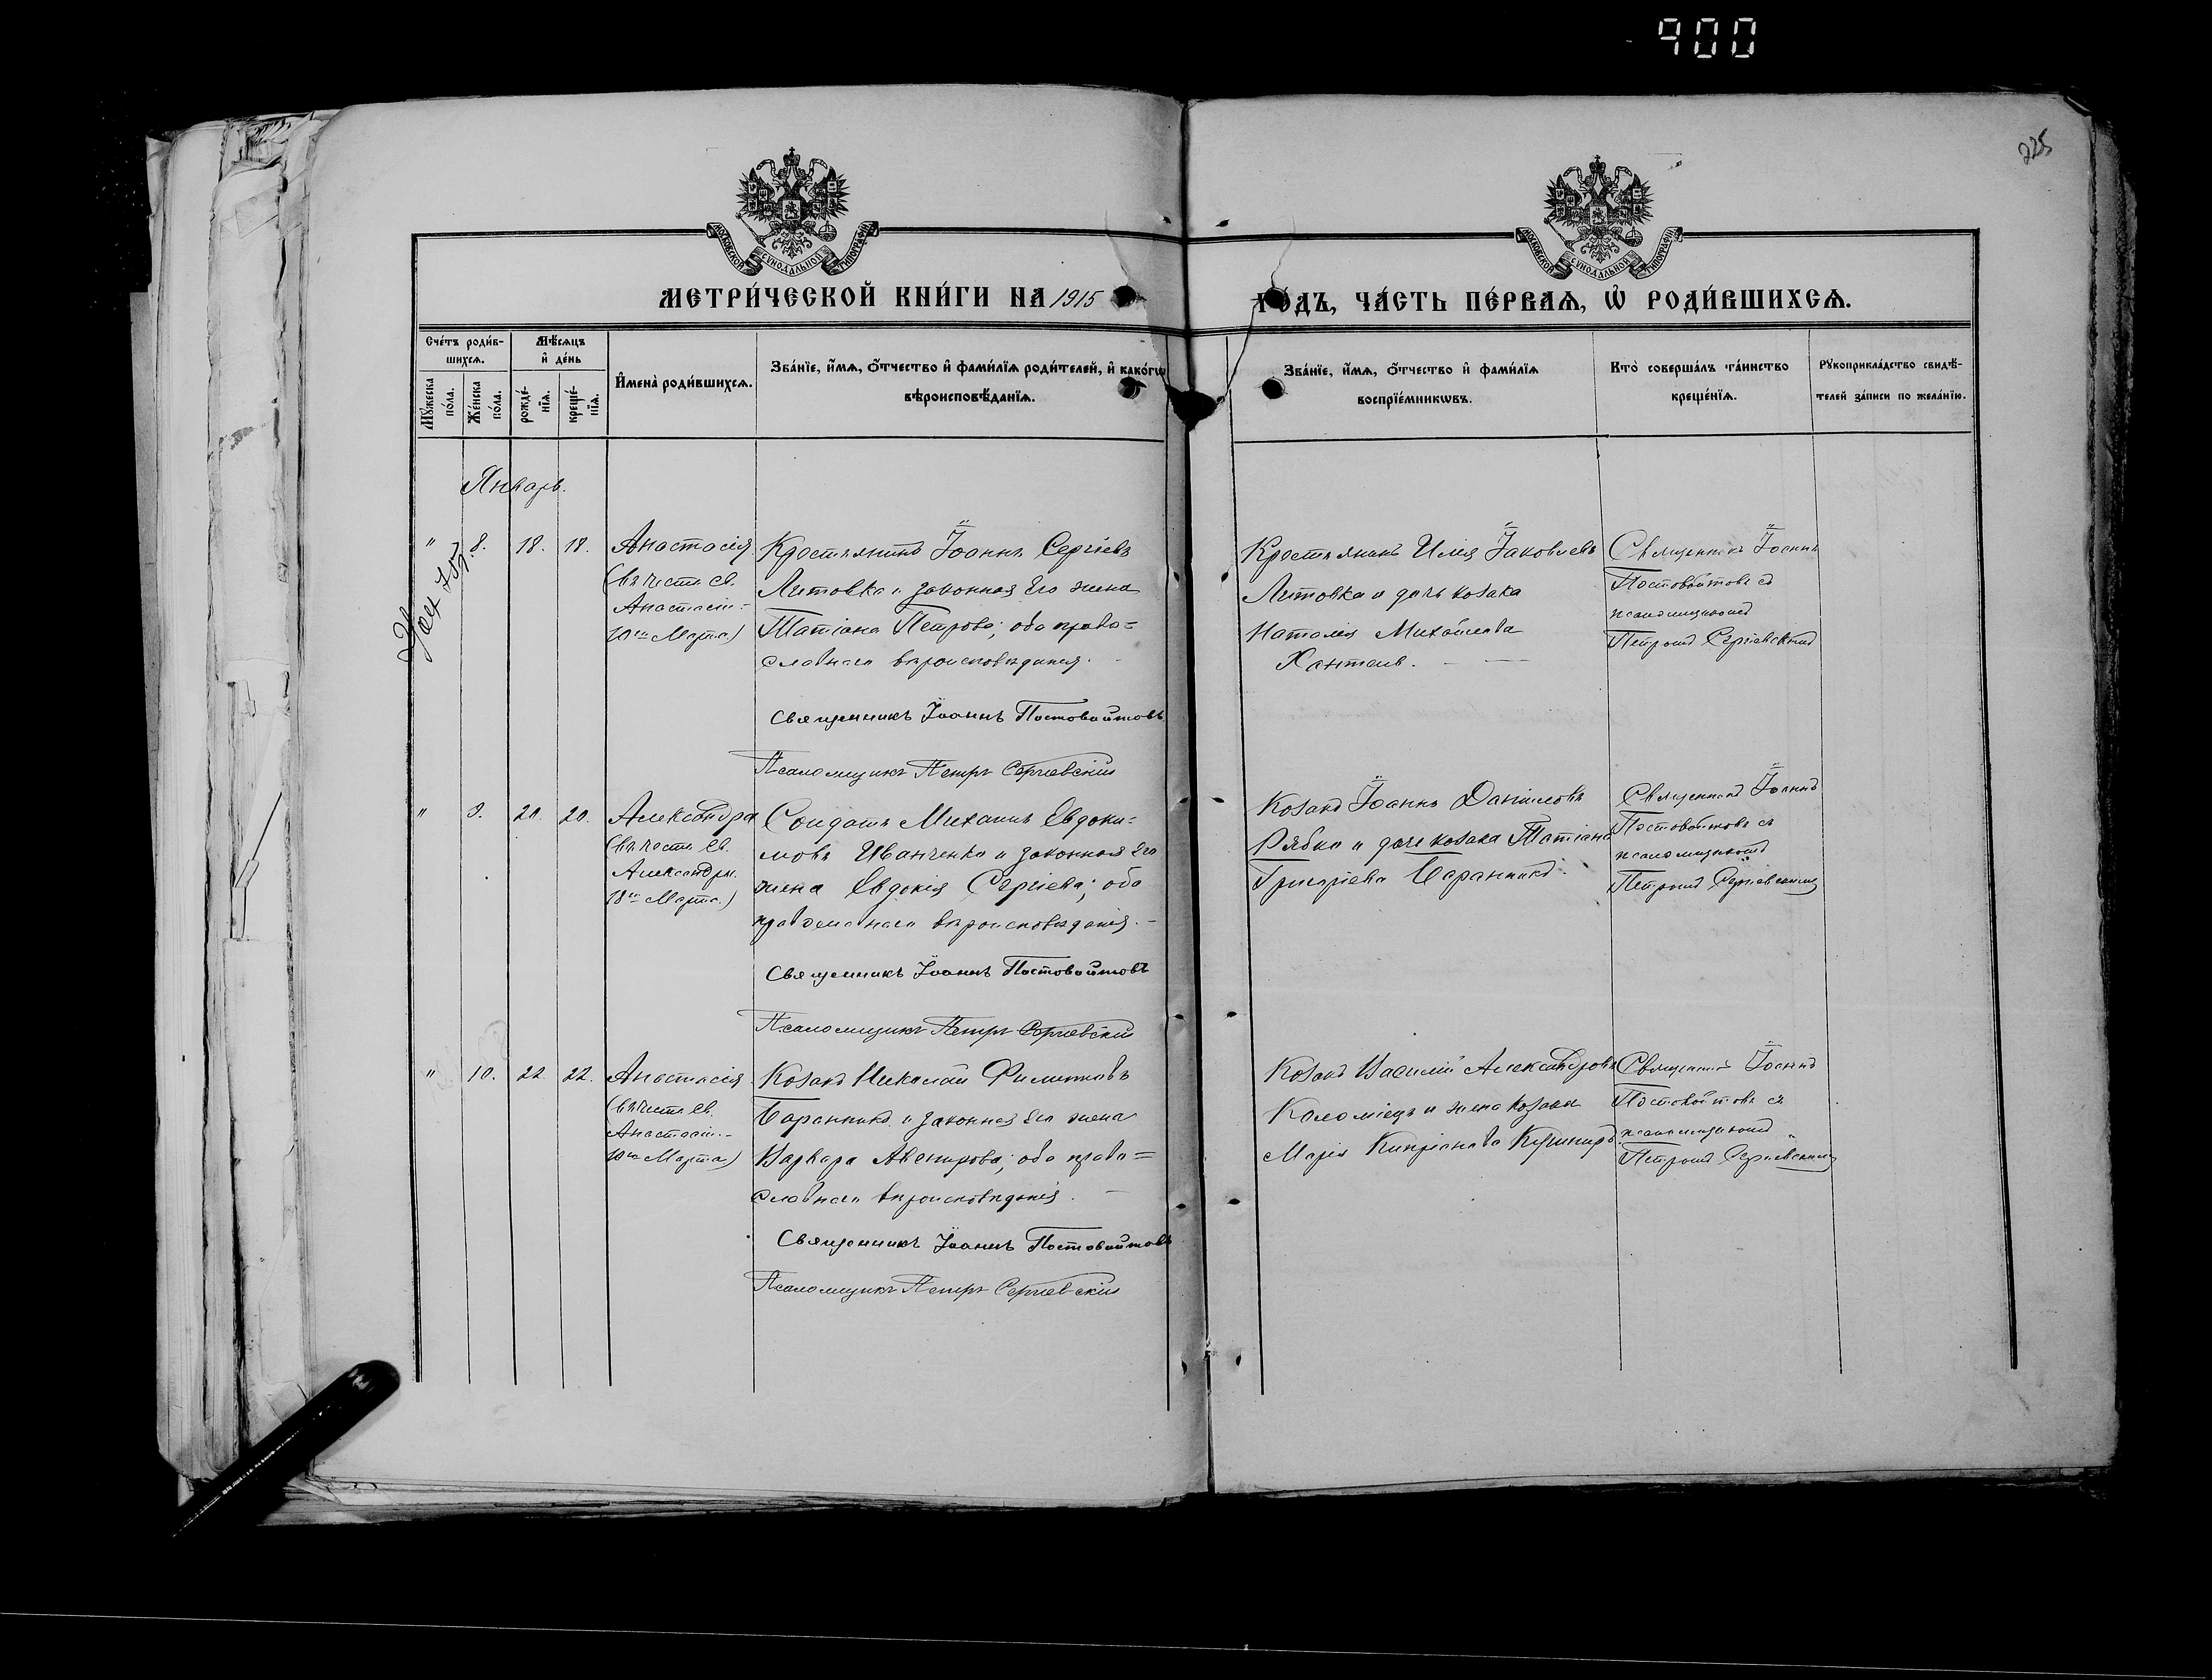 900
225
МОСКОВСКОЙ СУНОДАЛЬНОЙ ТИПОГРАФІИ
МОСКОВСКОЙ СУНОДАЛЬНОЙ ТИПОГРАФІИ
МЕТРИ́ЧЕСКОЙ КНИ́ГИ НА 1915
ГО́ДЪ, ЧА́СТЬ ПЕ́РВАѦ, Ѡ҆ РОДИ́ВШИХСѦ.
Сче́тъ роди́в-
шихсѧ.
Мѣ́сѧцъ
и҆ де́нь
Мꙋ́жеска
по́ла.
Же́нска
по́ла.
рожде́-
нїѧ.
креще́-
нїѧ.
И҆мена̀ роди́вшихсѧ.
Зва́нїе, и҆́мѧ, ѻ҆́тчество и҆ фами́лїѧ роди́телей, и҆ како́гѡ
вѣроисповѣ́данїѧ.
Зва́нїе, и҆́мѧ, ѻ҆́тчество и҆ фами́лїѧ
воспрїе́мникѡвъ.
Кто̀ соверша́лъ та́инство
креще́нїѧ.
Рꙋкоприкла́дство свидѣ́-
телей за́писи по жела́нїю.
Январь.
" 8. 18. 18. Анастасія
(въ честь св.
Анастасіи =
10го Марта)
Крестьянинъ Іоаннъ Сергіевъ
Литовка и законная его жена
Татіана Петрова; оба право=
славнаго вѣроисповѣданія.
Священникъ Іоаннъ Постовойтовъ
Псаломщикъ Петръ Сергіевскій
Крестьянинъ Илія Іаковлевъ
Литовка и дочь козака
Наталія Михайлова
Священникъ Іоаннъ
Постовойтовъ съ
псаломщикомъ
Петромъ Сергіевскимъ
" 9. 20. 20. Александра
(въ честь св.
Александры
18го Марта)
Солдатъ Михаилъ Евдоки=
мовъ Иванченко и законная его
жена Евдокія Сергіева; оба
православнаго вѣроисповѣданія. –
Священникъ Іоаннъ Постовойтовъ
Псаломщикъ Петръ Сергіевскій
Козакъ Іоаннъ Даніиловъ
Рябко и дочь козака Татіана
Григоріева Баранникъ.
Священникъ Іоаннъ
Постовойтовъ съ
псаломщикомъ
Петромъ Сергіевскимъ
" 10. 22. 22. Анастасія
(въ честь св.
Анастасіи –
10го Марта)
Козакъ Николай Филипповъ
Баранникъ и законная его жена
Варвара Авенирова; оба право=
славнаго вѣроисповѣданія. –
Священникъ Іоаннъ Постовойтовъ
Псаломщикъ Петръ Сергіевскій
Козакъ Василій Александровъ
Коломіецъ и жена козака
Марія Кипріанова Кушниръ.
Священникъ Іоаннъ
Постовойтовъ съ
псаломщикомъ
Петромъ Сергіевскимъ